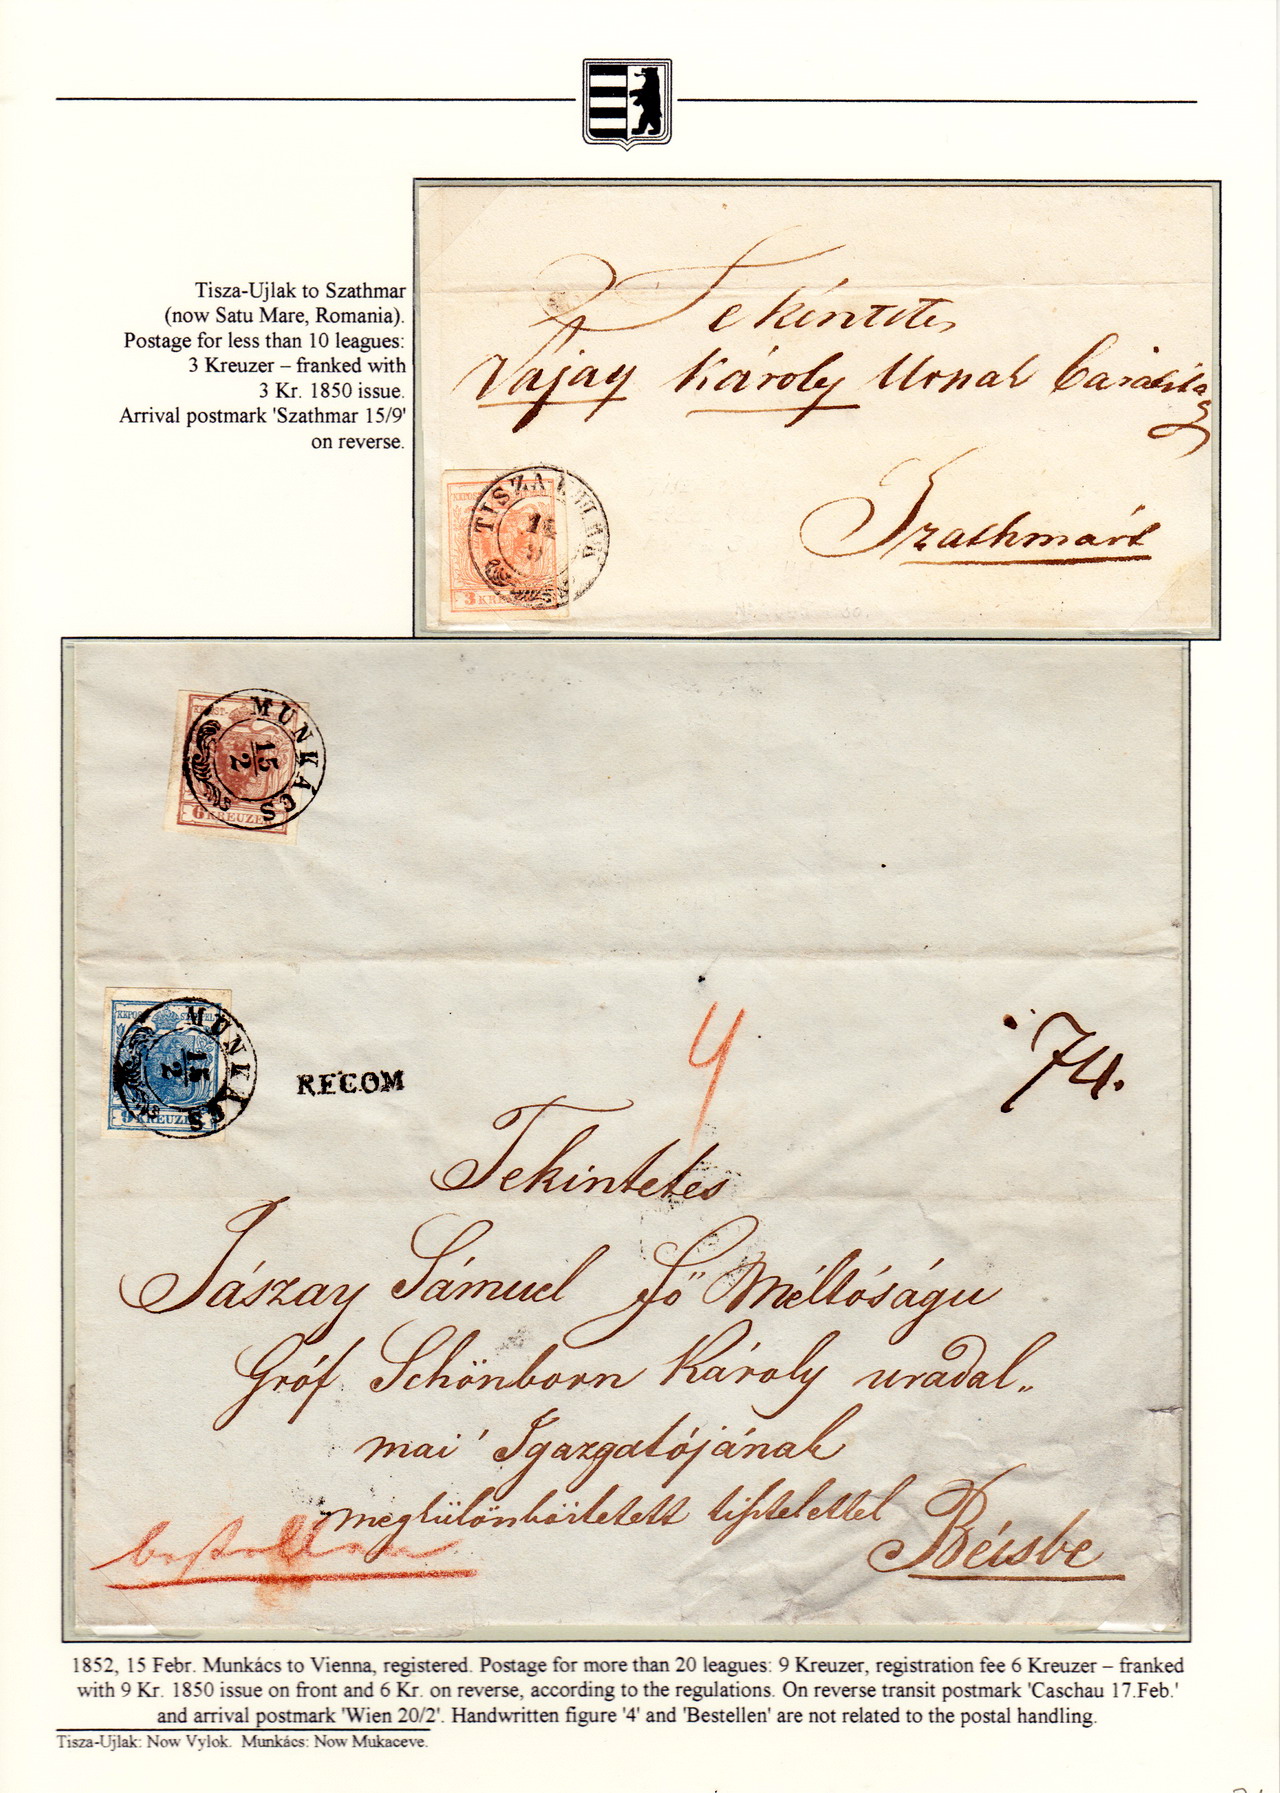 Tisza-Ujlak to Szathmar
(now Satu Mare, Romania).
Postage for less than 10 leagues:
3 Kreuzer – franked with
3 Kr. 1850 issue.
Arrival postmark 'Szathmar 15/9'
on reverse.
Tekintetes
Vajay Károly Urnak
Szathmárt
TISZA UJLAK
9
3 KREUZER
MUNKÁCS
15
2
6 KREUZER
MUNKÁCS
15
2
9 KREUZER
RECOM
4
74.
Tekintetes
Jászay Sámuel Fő Méltóságu
Gróf Schönborn Károly uradal„
mai Igazgatójának
megkülönböztetett tisztelettel
Bécsbe
bestellen
1852, 15 Febr. Munkács to Vienna, registered. Postage for more than 20 leagues: 9 Kreuzer, registration fee 6 Kreuzer – franked
with 9 Kr. 1850 issue on front and 6 Kr. on reverse, according to the regulations. On reverse transit postmark 'Caschau 17.Feb.'
and arrival postmark 'Wien 20/2'. Handwritten figure '4' and 'Bestellen' are not related to the postal handling.
Tisza-Ujlak: Now Vylok. Munkács: Now Mukaceve.